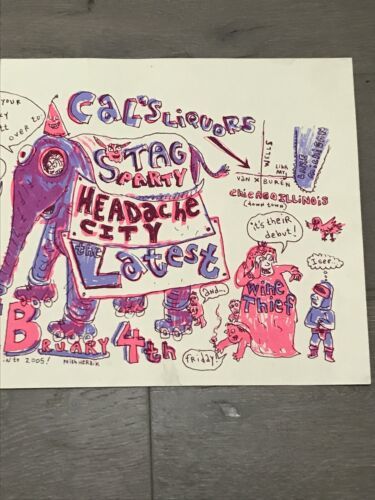 YOUR
OVER 20
CAL'S LIQUORS
WELLS
VAN
BUREN
CHICAGO ILLINOIS
(downtown)
STAG
PARTY
HEADACHE
CITY
the Latest
it's their
debut!
I see..
WINE
THIEF
and..
friday!
BRUARY 4th
to 2005!